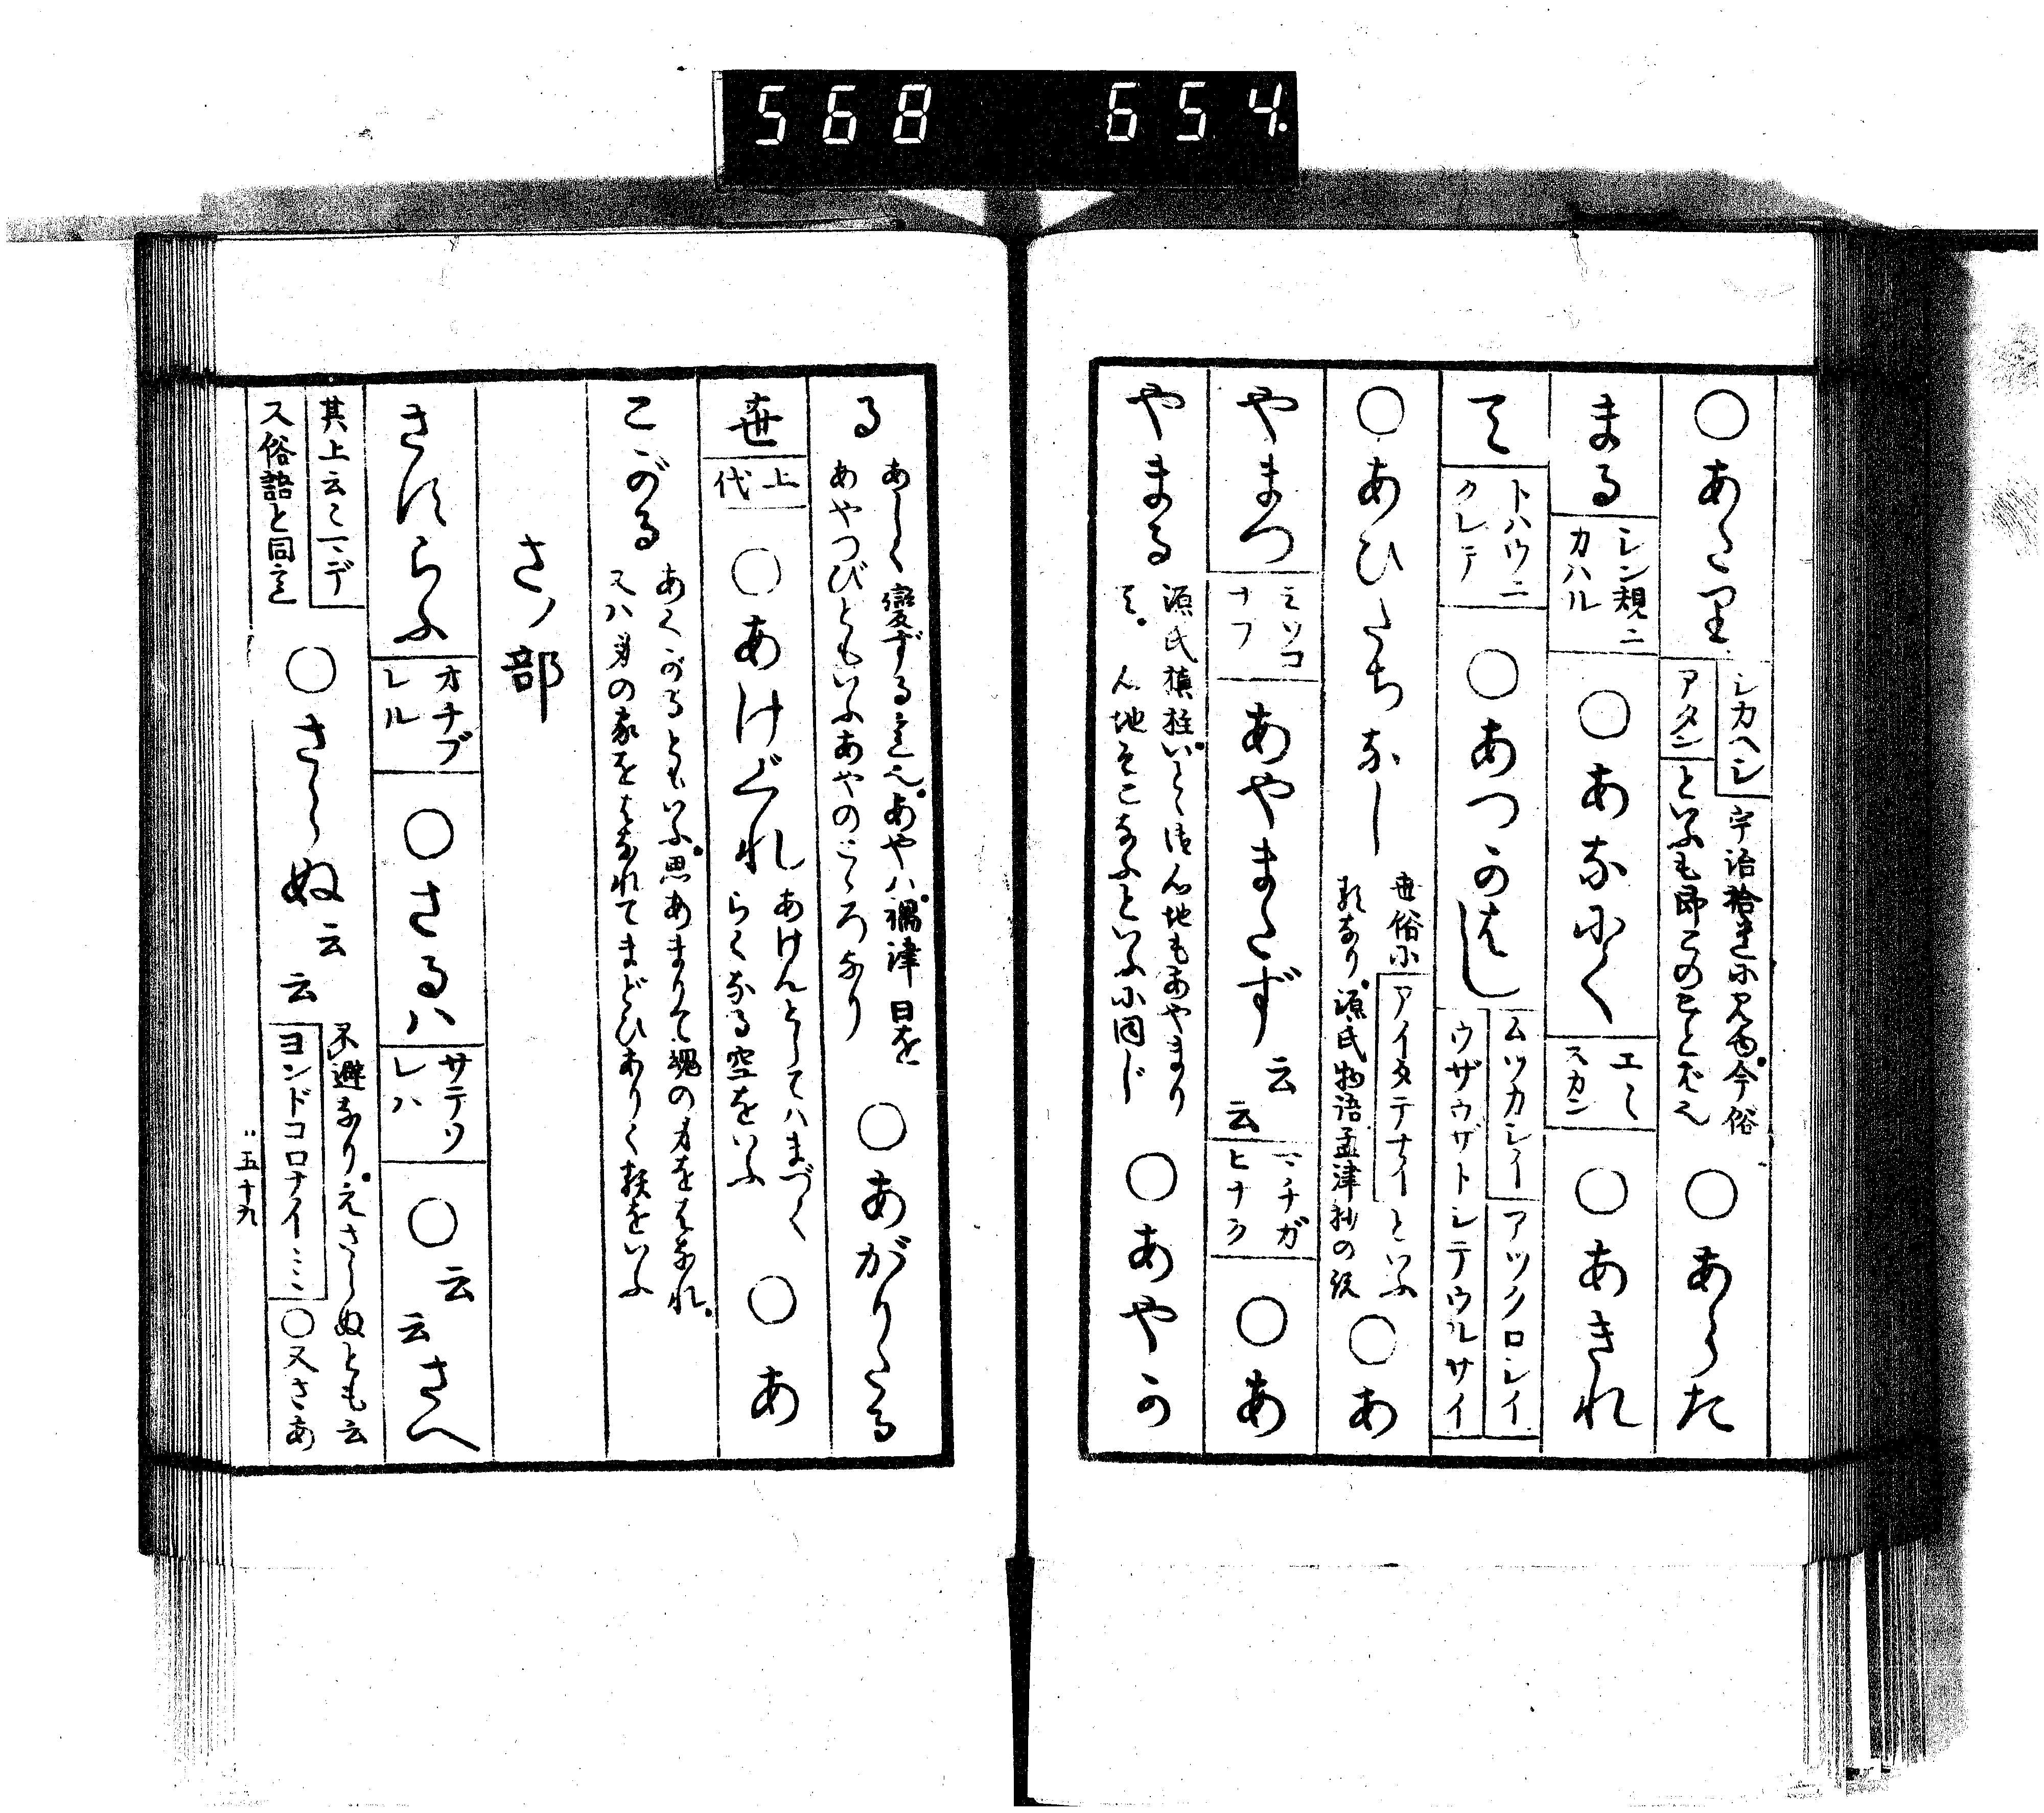 568 654
○あたり
シカヘシ
アタン
宇治拾遺に見ゆ。今俗
といふも即このことば也
○あらた
まる
シン規ニ
カハル
○あなにく
エヽ
スカン
○あきれ
て
トハウニ
クレテ
○あつかはし
ムツカシイ
アツクロシイ
ウザウザトシテウルサイ
○あひたちなし
世俗に
アイタテナイ
といふ
源氏物語孟津抄の説
○あ
やまつ
ミソコ
ナフ
あやまたず云云
マチガ
ヒナク
○あ
やまる
源氏槙柱。いとゞ御心地もあやまり
て。心地そこなふといふに同じ
○あやか
る
あしく変ずる也。あやハ。禍津日を
あやつびともいふあやのこゝろなり
○あがりたる
世
上
代
○あけぐれ
あけんとしてハまづく
らくなる空をいふ
○あ
こがる
あくがるともいふ。思あまりて魂の身をはなれ。
又ハ身の家をはなれてまどひありく類をいふ
さノ部
さすらふ
オチブ
レル
○さるハ
サテソ
レハ
○云云さへ
其上云云マデ
又俗語と同意
○さらぬ云云
不避なり。えさらぬとも云
ヨンドコロナイ
○又さあ
五十九